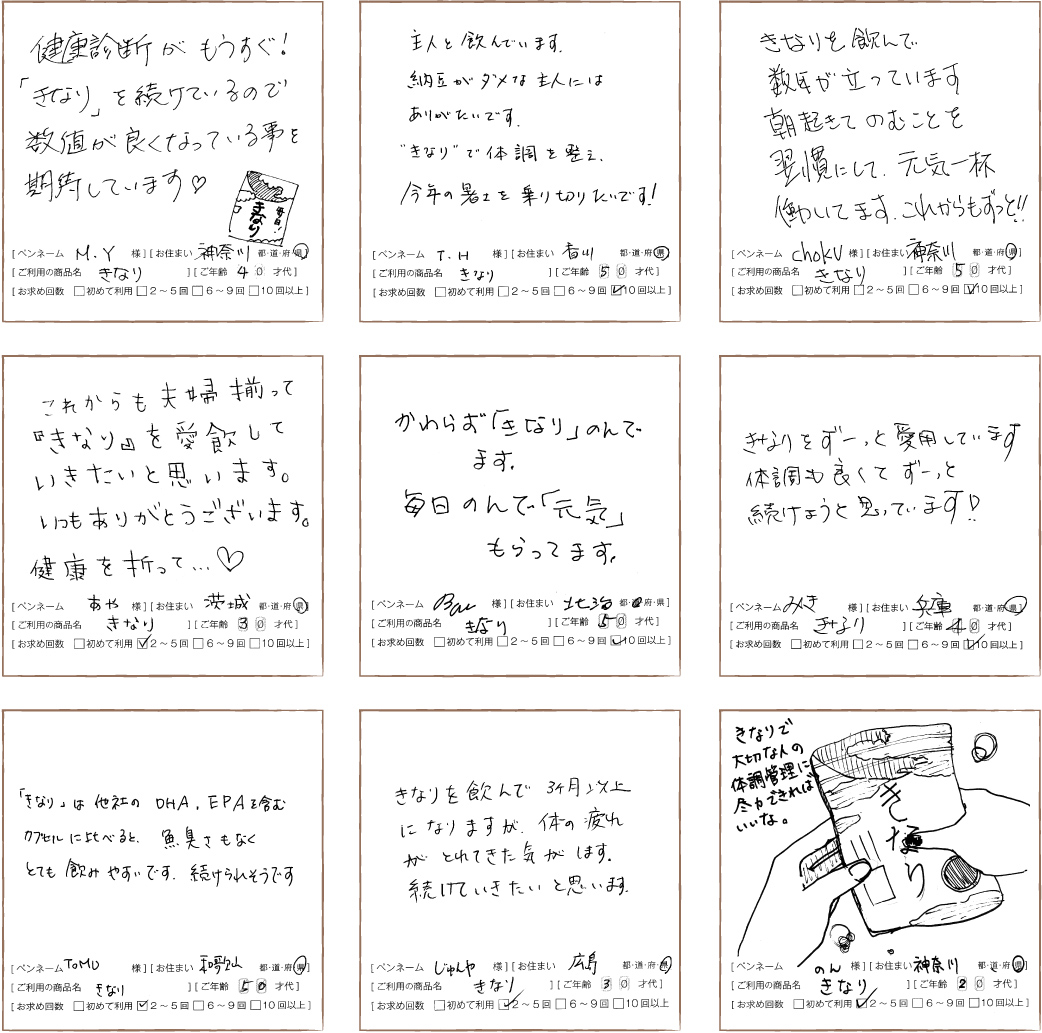 健康診断がもうすぐ!
「きなり」を続けているので
数値が良くなっている事を
期待しています♡
毎日!
きなり
[ペンネーム M.Y 様][お住まい 神奈川 都・道・府・県]
[ご利用の商品名 きなり ][ご年齢 40 才代]
[お求め回数 □初めて利用 □2～5回 □6～9回 □10回以上]
主人と飲んでいます.
納豆がダメな主人には
ありがたいです.
"きなり"で体調を整え、
今年の暑さを乗り切りたいです!
[ペンネーム T.H 様][お住まい 香川 都・道・府・県]
[ご利用の商品名 きなり ][ご年齢 50 才代]
[お求め回数 □初めて利用 □2～5回 □6～9回 ☑10回以上]
きなりを飲んで
数年が立っています
朝起きてのむことを
習慣にして、元気一杯
働いてます.これからもずっと!!
[ペンネーム choku 様][お住まい 神奈川 都・道・府・県]
[ご利用の商品名 きなり ][ご年齢 50 才代]
[お求め回数 □初めて利用 □2～5回 □6～9回 ☑10回以上]
これからも夫婦揃って
『きなり』を愛飲して
いきたいと思います。
いつもありがとうございます。
健康を祈って…♡
[ペンネーム あや 様][お住まい 茨城 都・道・府・県]
[ご利用の商品名 きなり ][ご年齢 30 才代]
[お求め回数 □初めて利用 ☑2～5回 □6～9回 □10回以上]
かわらず「きなり」のんで
ます.
毎日のんで「元気」
もらってます.
[ペンネーム 様][お住まい 都・道・府・県]
[ご利用の商品名 きなり ][ご年齢 50 才代]
[お求め回数 □初めて利用 □2～5回 □6～9回 ☑10回以上]
きなりをずーっと愛用しています
体調も良くてずーっと
続けようと思っています!!
[ペンネーム みき 様][お住まい 兵庫 都・道・府・県]
[ご利用の商品名 きなり ][ご年齢 40 才代]
[お求め回数 □初めて利用 □2～5回 □6～9回 ☑10回以上]
「きなり」は他社のDHA,EPAを含む
カプセルに比べると、魚臭さもなく
とても飲みやすいです.続けられそうです
[ペンネーム TOMO 様][お住まい 和歌山 都・道・府・県]
[ご利用の商品名 きなり ][ご年齢 50 才代]
[お求め回数 □初めて利用 ☑2～5回 □6～9回 □10回以上]
きなりを飲んで3ヶ月以上
になりますが、体の疲れ
がとれてきた気がします.
続けていきたいと思います.
[ペンネーム じゅんや 様][お住まい 広島 都・道・府・県]
[ご利用の商品名 きなり ][ご年齢 30 才代]
[お求め回数 □初めて利用 ☑2～5回 □6～9回 □10回以上]
きなりで
大切な人の
体調管理に
尽力できれば
いいな。
きなり
[ペンネーム のん 様][お住まい 神奈川 都・道・府・県]
[ご利用の商品名 きなり ][ご年齢 20 才代]
[お求め回数 □初めて利用 ☑2～5回 □6～9回 □10回以上]